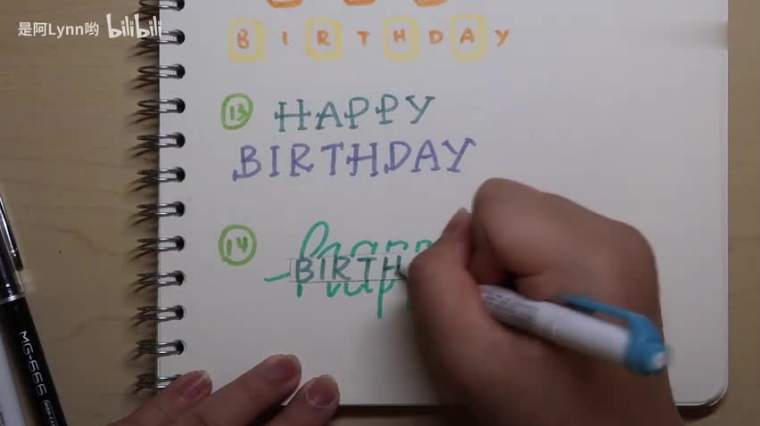 是阿Lynn哟 bilibili
BIRTHDAY
13 HAPPY
BIRTHDAY
14 happ
BIRTH
MG-666